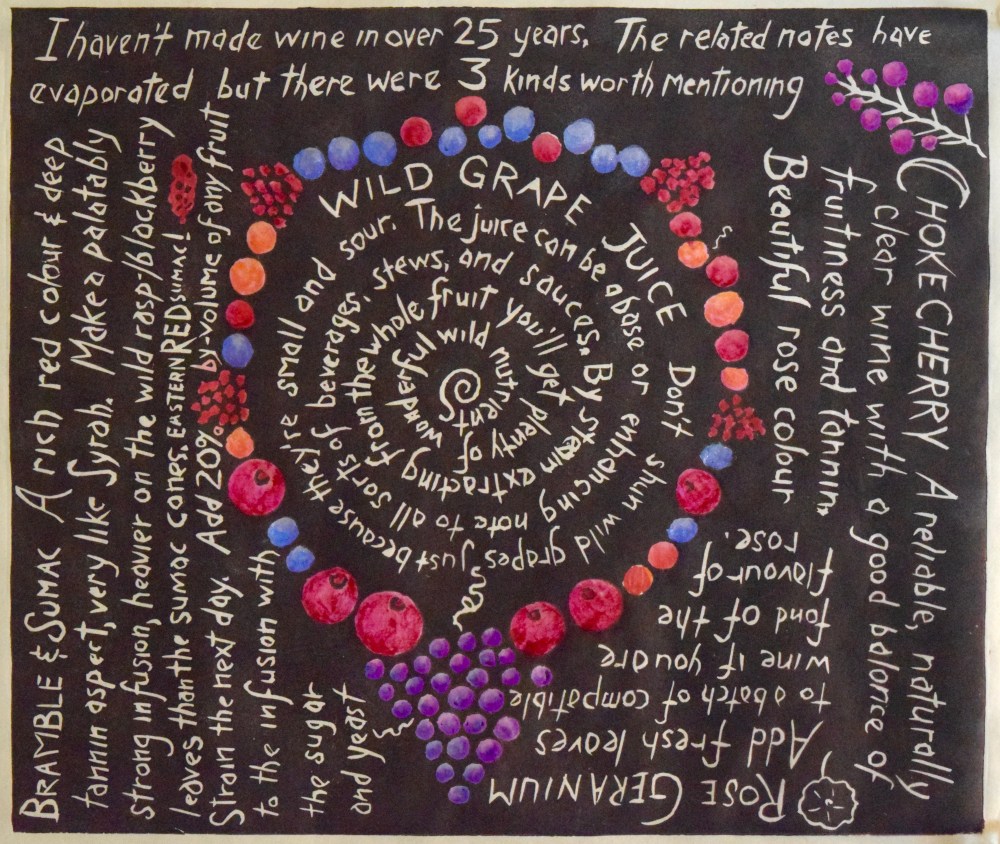 I haven't made wine in over 25 years. The related notes have
evaporated but there were 3 kinds worth mentioning
CHOKECHERRY A reliable, naturally
clear wine with a good balance of
fruitiness and tannin.
Beautiful rose colour
ROSE GERANIUM
Add fresh leaves
to a batch of compatible
wine if you are
fond of the
flavour of
rose.
BRAMBLE & SUMAC A rich red colour & deep
tannin aspect, very like Syrah. Make a palatably
strong infusion, heavier on the wild rasp/blackberry
leaves than the sumac cones. EASTERN RED SUMAC!
Strain the next day. Add 20% by-volume of any fruit
to the infusion with
the sugar
and yeast
WILD GRAPE JUICE Don't shun wild grapes just because they're small and sour. The juice can be a base or enhancing note to all sorts of beverages, stews, and sauces. By steam extracting from the whole fruit you'll get plenty of wonderful wild nutrient